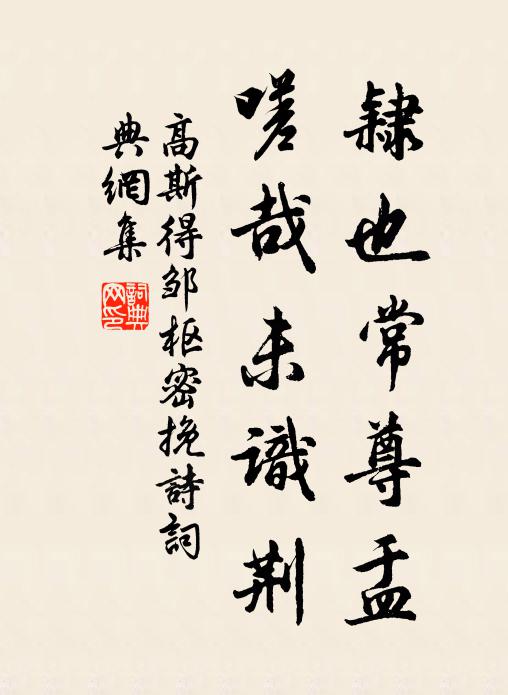 隸也常尊孟
嗟哉未識荆
高斯得邹枢密挽詩詞
典網集
詞典
网印